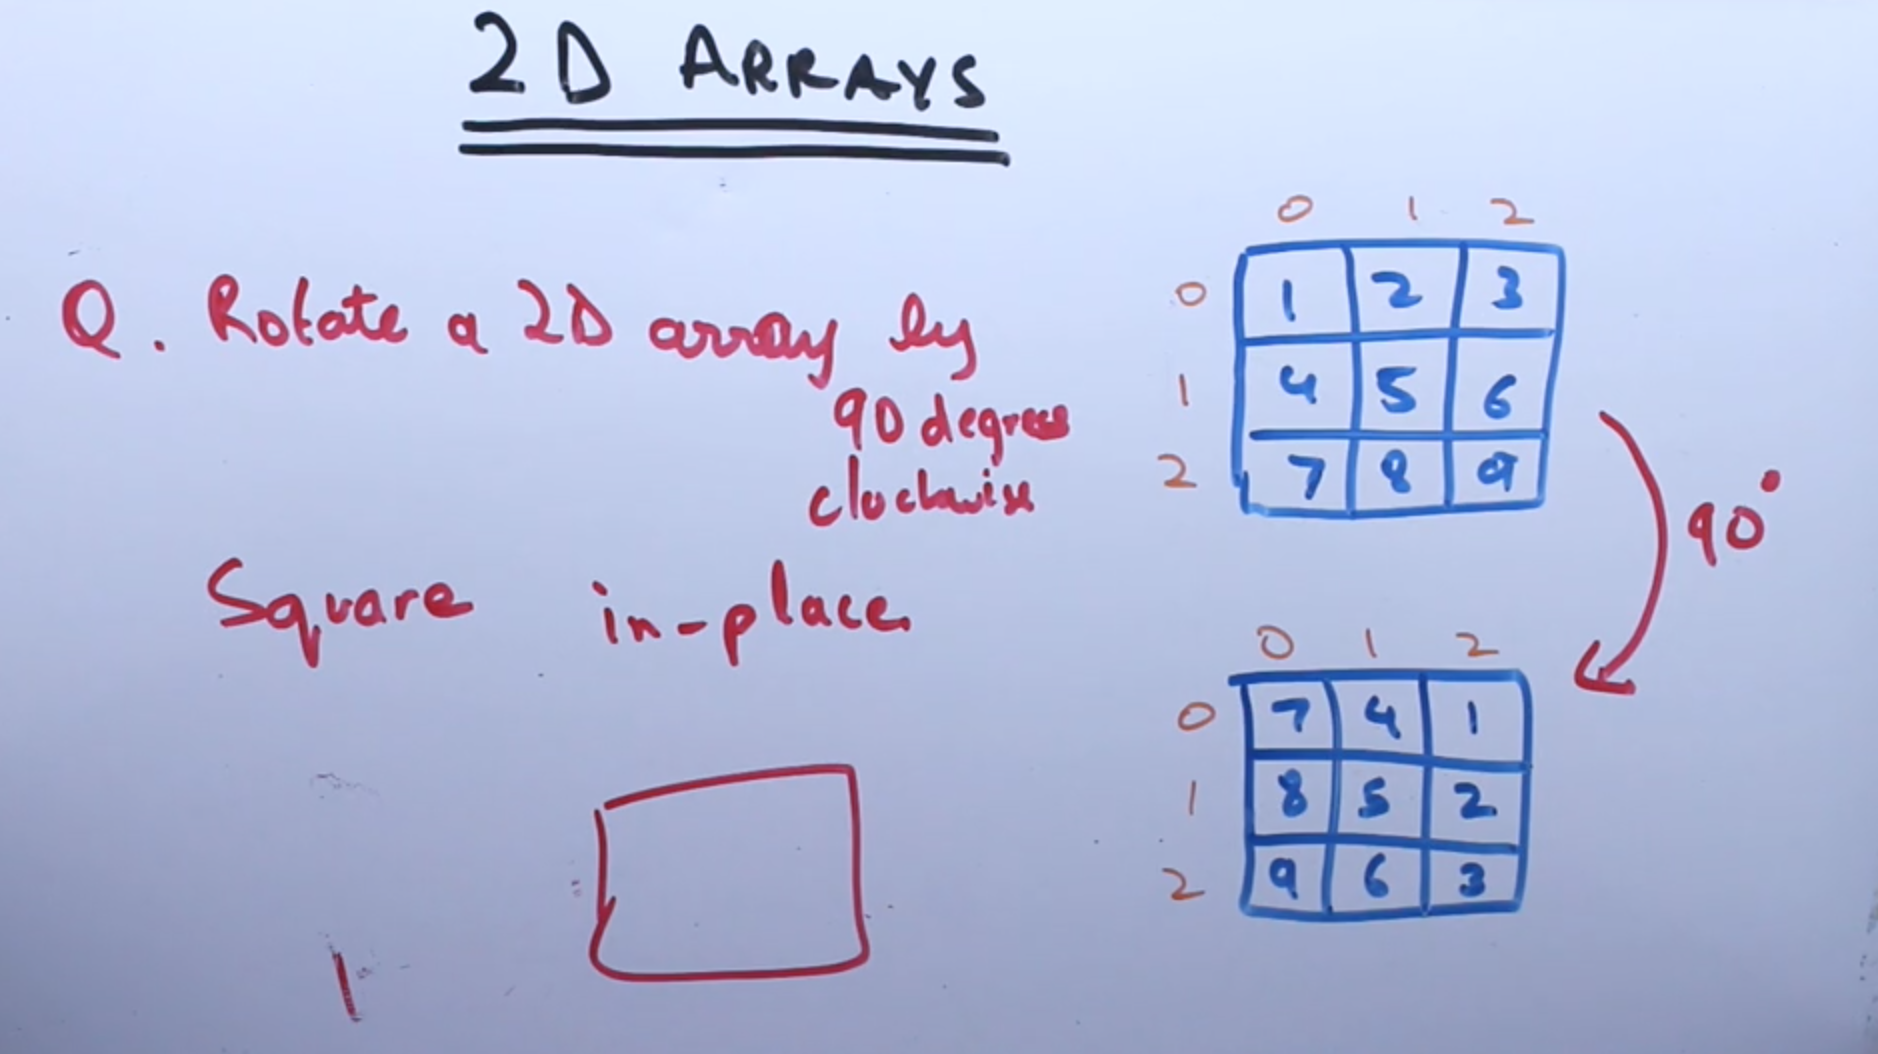 2D ARRAYS
Q. Rotate a 2D array by
90 degrees
clockwise
Square in-place
0 1 2
0 1 2 3
1 4 5 6
2 7 8 9
90°
0 1 2
0 7 4 1
1 8 5 2
2 9 6 3